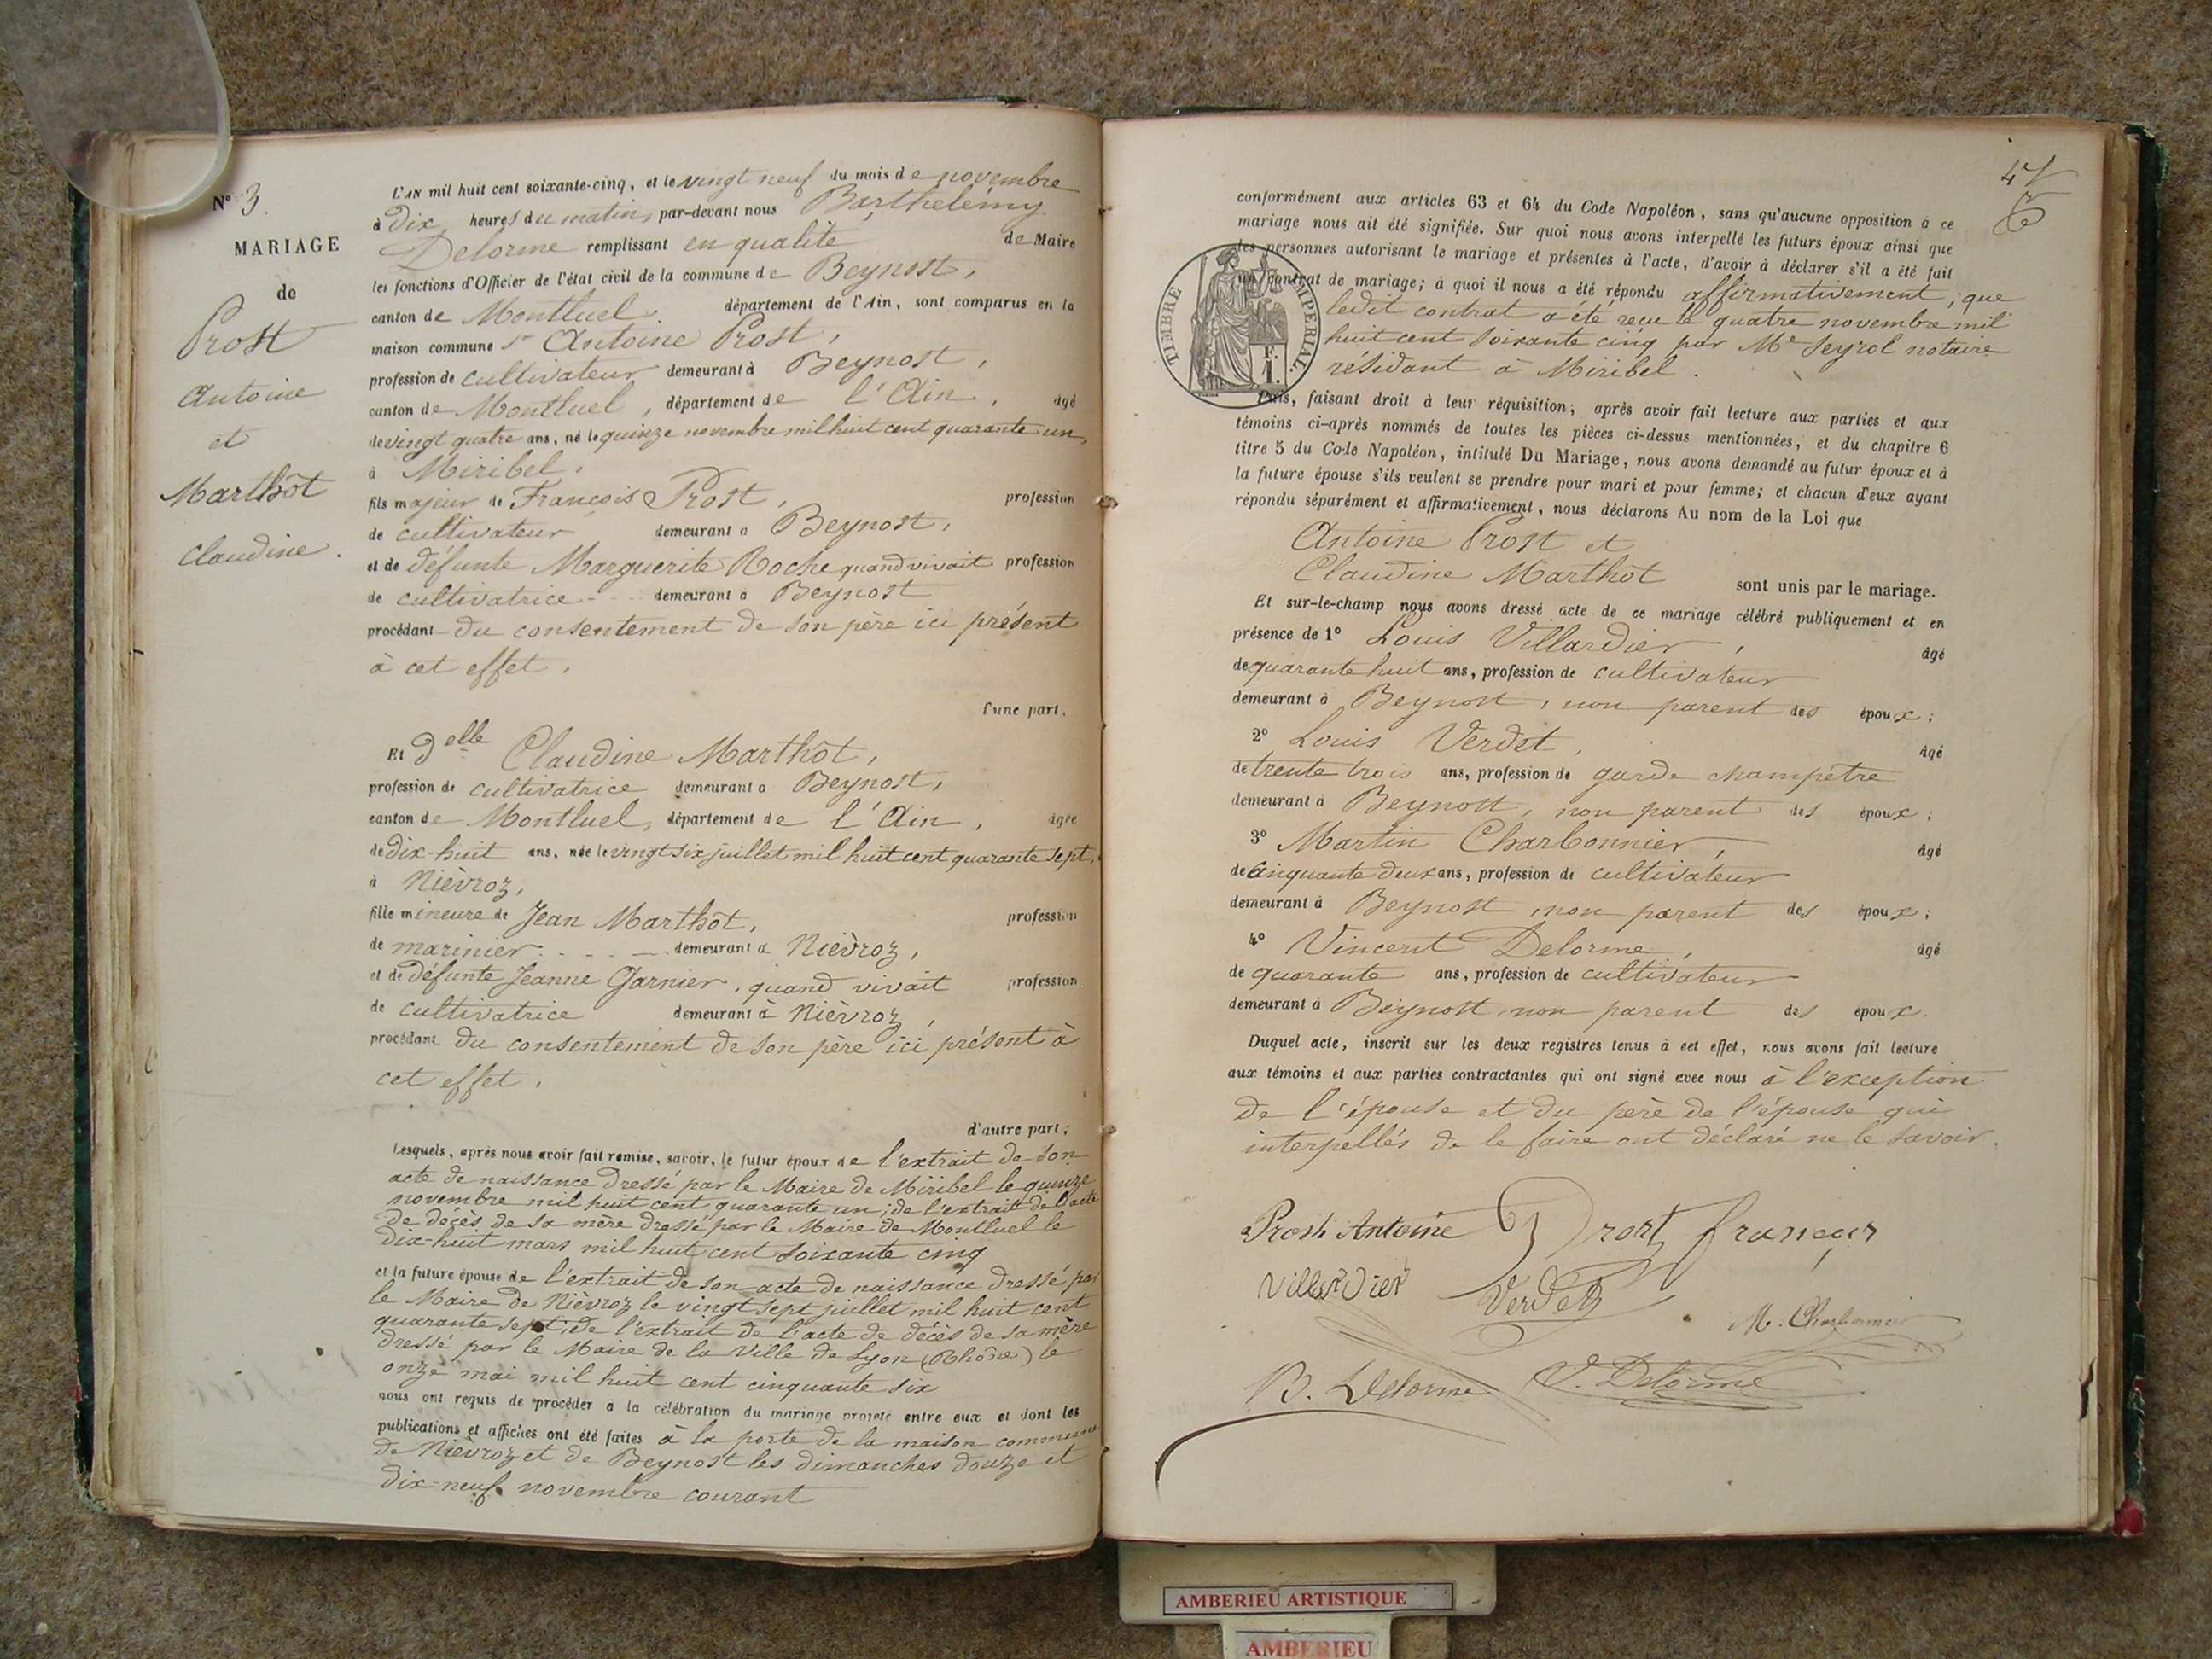 N° 3.
MARIAGE
de
Prost
Antoine
et
Marthôt
Claudine.
L'AN mil huit cent soixante-cinq, et le vingt neuf du mois de novembre
à dix heures du matin, par-devant nous Barthélemy
Delorme remplissant en qualité de Maire
les fonctions d'Officier de l'état civil de la commune de Beynost,
canton de Montluel. département de l'Ain, sont comparus en la
maison commune sr Antoine Prost,
profession de cultivateur demeurant à Beynost,
canton de Montluel, département de l'Ain, âgé
de vingt quatre ans, né le quinze novembre mil huit cent quarante un,
à Miribel,
fils majeur de François Prost, profession
de cultivateur demeurant à Beynost,
et de défunte Marguerite Roche quand vivait profession
de cultivatrice demeurant à Beynost
procédant du consentement de son père ici présent
à cet effet,
d'une part,
Et Delle Claudine Marthôt,
profession de cultivatrice demeurant à Beynost,
canton de Montluel, département de l'Ain, âgée
de dix-huit ans, née le vingt six juillet mil huit cent quarante sept,
à Nièvroz,
fille mineure de Jean Marthôt, profession
de marinier demeurant à Nièvroz,
et de défunte Jeanne Garnier, quand vivait profession
de cultivatrice demeurant à Nièvroz,
procédant du consentement de son père ici présent à
cet effet,
d'autre part;
Lesquels, après nous avoir fait remise, savoir, le futur époux de l'extrait de son
acte de naissance dressé par le Maire de Miribel le quinze
novembre mil huit cent quarante un; de l'extrait de l'acte
de décès de sa mère dressé par le Maire de Montluel le
dix-huit mars mil huit cent soixante cinq
et la future épouse de l'extrait de son acte de naissance dressé par
le Maire de Nièvroz le vingt sept juillet mil huit cent
quarante sept; de l'extrait de l'acte de décès de sa mère
dressé par le Maire de la Ville de Lyon (Rhône) le
onze mai mil huit cent cinquante six
nous ont requis de procéder à la célébration du mariage projeté entre eux et dont les
publications et affiches ont été faites à la porte de la maison commune
de Nièvroz et de Beynost les dimanches douze et
dix-neuf novembre courant
47
conformément aux articles 63 et 64 du Code Napoléon, sans qu'aucune opposition à ce
mariage nous ait été signifiée. Sur quoi nous avons interpellé les futurs époux ainsi que
les personnes autorisant le mariage et présentes à l'acte, d'avoir à déclarer s'il a été fait
un contrat de mariage; à quoi il nous a été répondu affirmativement; que
ledit contrat a été reçu le quatre novembre mil
huit cent soixante cinq par Me Seyrol notaire
résidant à Miribel.
TIMBRE IMPERIAL
Puis, faisant droit à leur réquisition, après avoir fait lecture aux parties et aux
témoins ci-après nommés de toutes les pièces ci-dessus mentionnées, et du chapitre 6
titre 5 du Code Napoléon, intitulé Du Mariage, nous avons demandé au futur époux et à
la future épouse s'ils veulent se prendre pour mari et pour femme; et chacun d'eux ayant
répondu séparément et affirmativement, nous déclarons Au nom de la Loi que
Antoine Prost et
Claudine Marthôt sont unis par le mariage.
Et sur-le-champ nous avons dressé acte de ce mariage célébré publiquement et en
présence de 1° Louis Villardier, âgé
de quarante huit ans, profession de cultivateur
demeurant à Beynost, non parent des époux;
2° Louis Verdet, âgé
de trente trois ans, profession de garde champêtre
demeurant à Beynost, non parent des époux;
3° Martin Charbonnier, âgé
de cinquante deux ans, profession de cultivateur
demeurant à Beynost, non parent des époux;
4° Vincent Delorme, âgé
de quarante ans, profession de cultivateur
demeurant à Beynost, non parent des époux.
Duquel acte, inscrit sur les deux registres tenus à cet effet, nous avons fait lecture
aux témoins et aux parties contractantes qui ont signé avec nous à l'exception
de l'épouse et du père de l'épouse qui
interpellés de le faire ont déclaré ne le savoir.
Prost Antoine Prost françois
Villardier Verdet
M. Charbonnier
B. Delorme V. Delorme
AMBERIEU ARTISTIQUE
AMBERIEU